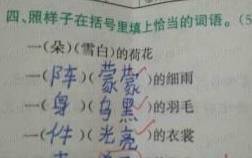 四、照样子在括号里填上恰当的词语。(5
一(朵)(雪白)的荷花
一(阵)(蒙蒙)的细雨
一(身)(乌黑)的羽毛
一(件)(光亮)的衣裳